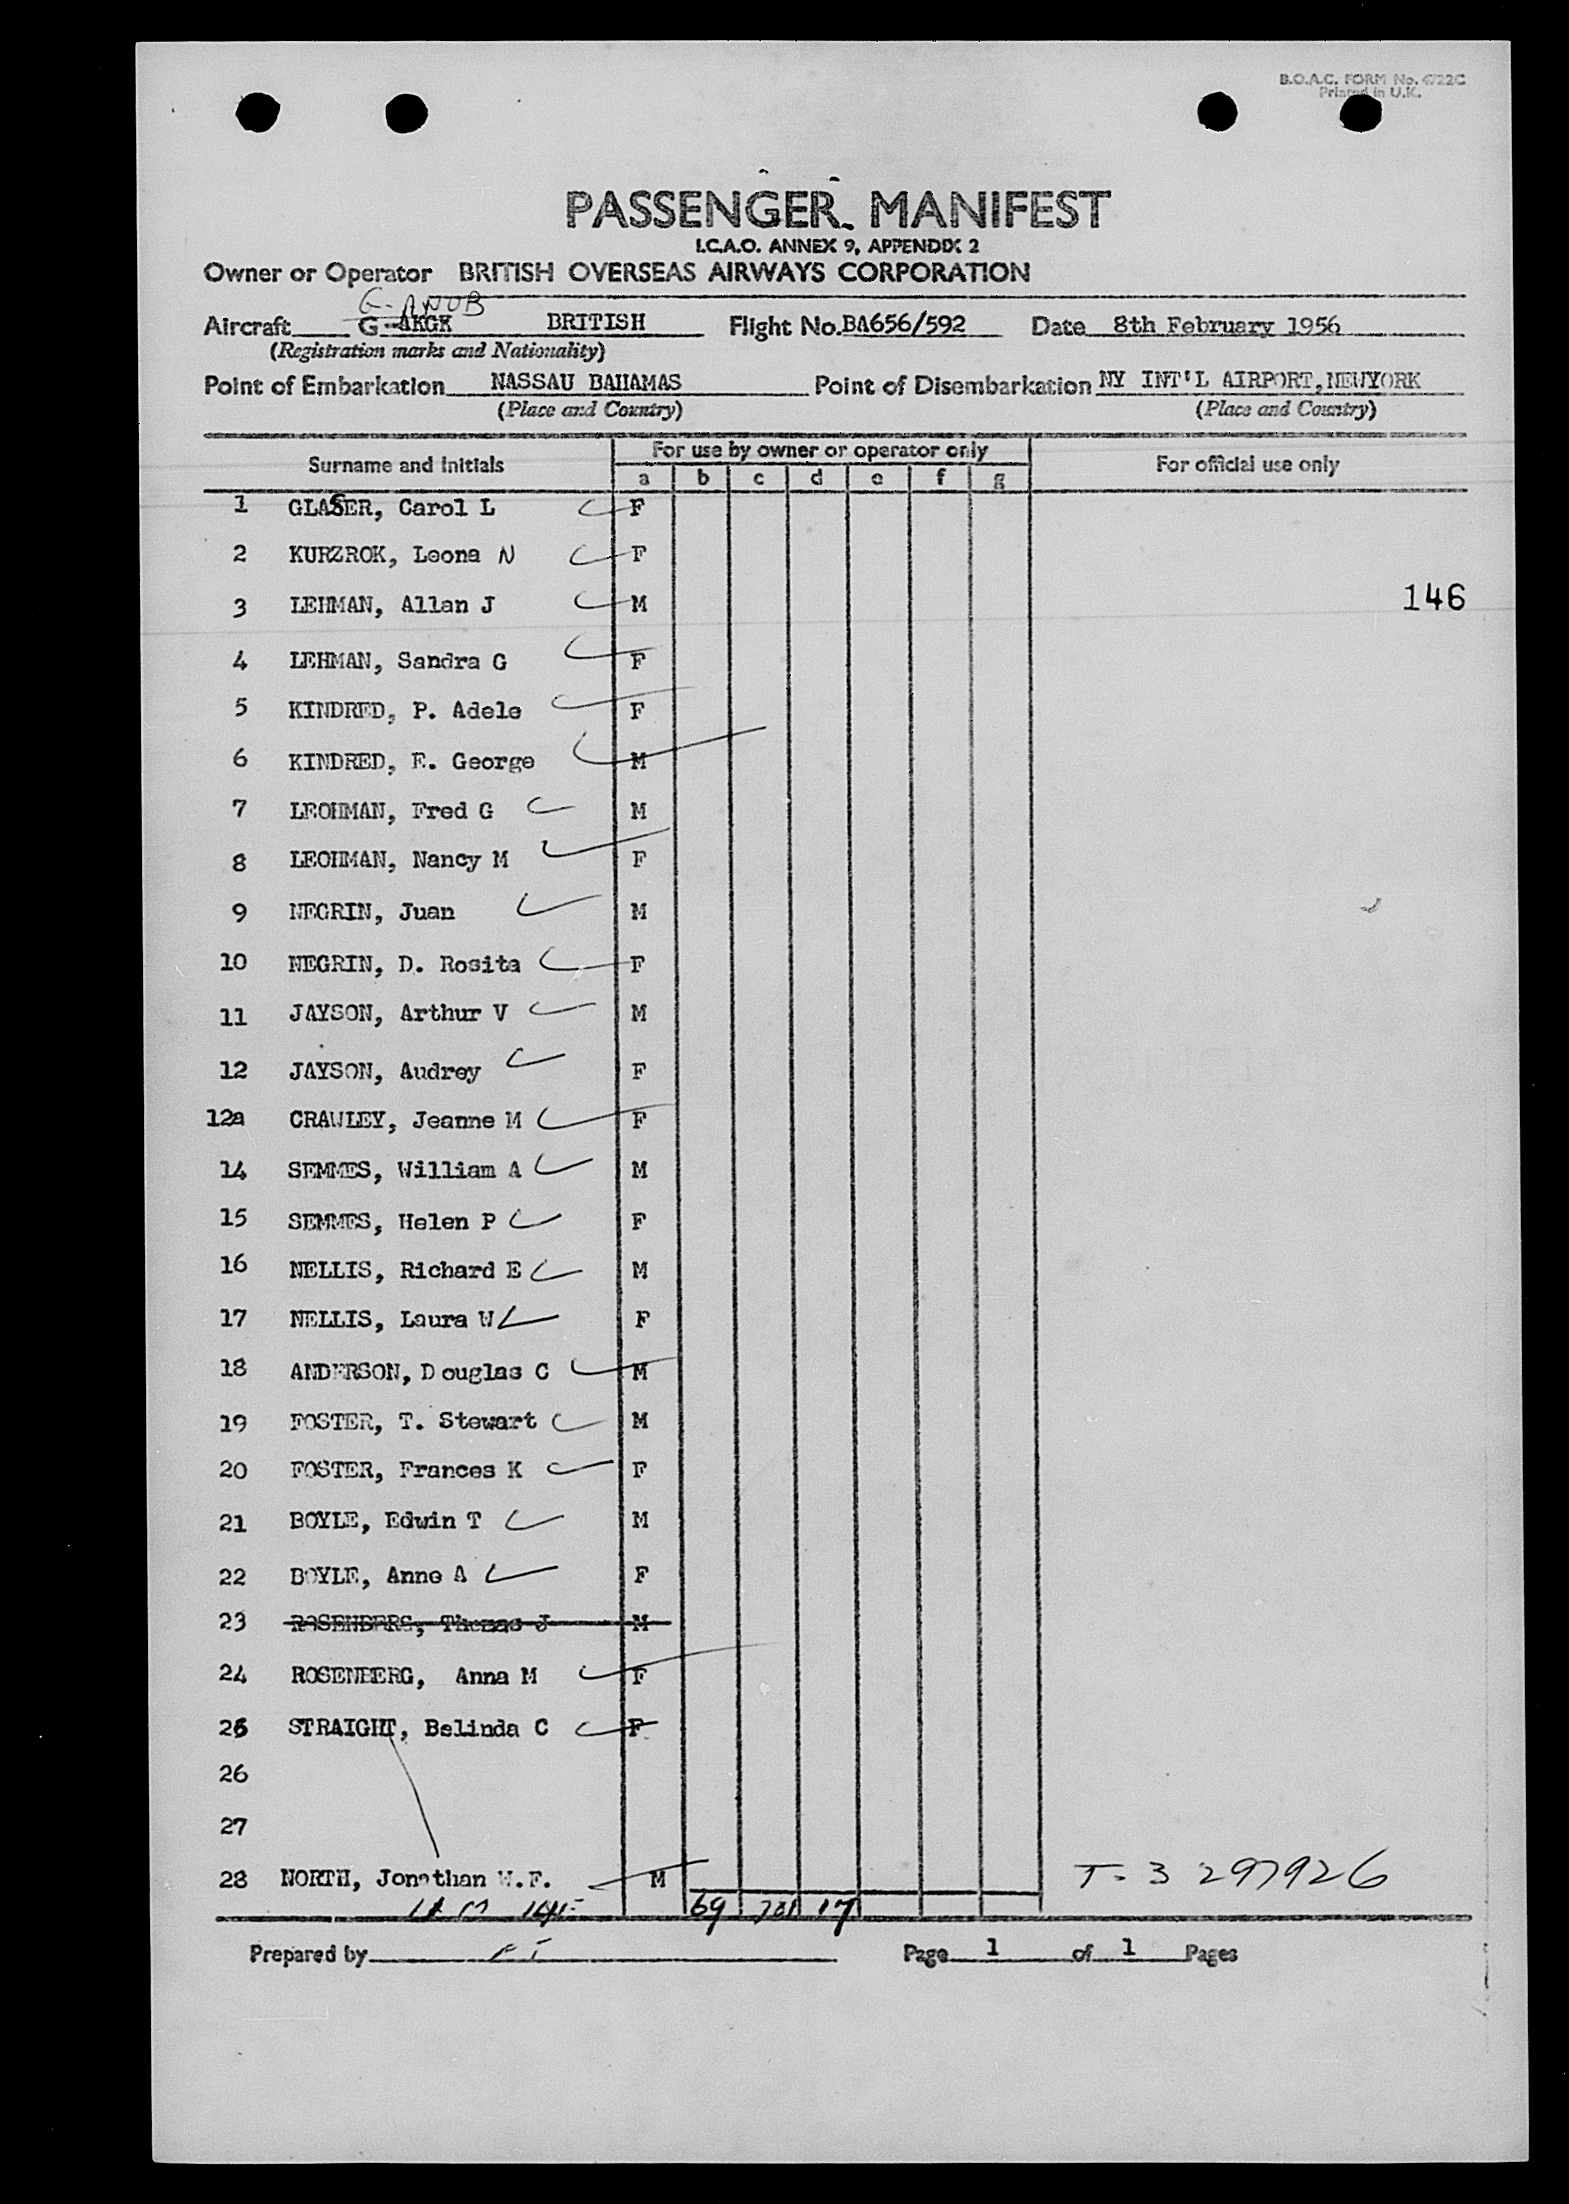 B.O.A.C. FORM No. 4722C
Printed in U.K.
PASSENGER MANIFEST
I.C.A.O. ANNEX 9, APPENDIX 2
Owner or Operator BRITISH OVERSEAS AIRWAYS CORPORATION
G-ANUB
Aircraft G-AKGK BRITISH Flight No. BA656/592 Date 8th February 1956
(Registration marks and Nationality)
Point of Embarkation NASSAU BAHAMAS Point of Disembarkation NY INT'L AIRPORT, NEWYORK
(Place and Country) (Place and Country)
Surname and Initials For use by owner or operator only For official use only
a b c d e f g
1 GLASER, Carol L F
2 KURZROK, Leona N F
3 LEHMAN, Allan J M 146
4 LEHMAN, Sandra G F
5 KINDRED, P. Adele F
6 KINDRED, E. George M
7 LEOHMAN, Fred G M
8 LEOHMAN, Nancy M F
9 NEGRIN, Juan M
10 NEGRIN, D. Rosita F
11 JAYSON, Arthur V M
12 JAYSON, Audrey F
12a CRAWLEY, Jeanne M F
14 SEMMES, William A M
15 SEMMES, Helen P F
16 NELLIS, Richard E M
17 NELLIS, Laura W F
18 ANDERSON, Douglas C M
19 FOSTER, T. Stewart M
20 FOSTER, Frances K F
21 BOYLE, Edwin T M
22 BOYLE, Anne A F
23 ROSENBERG, Thomas J M
24 ROSENBERG, Anna M F
25 STRAIGHT, Belinda C F
26
27
28 NORTH, Jonathan W.F. M T-3 297926
11 M 14F 69 17
Prepared by Page 1 of 1 Pages